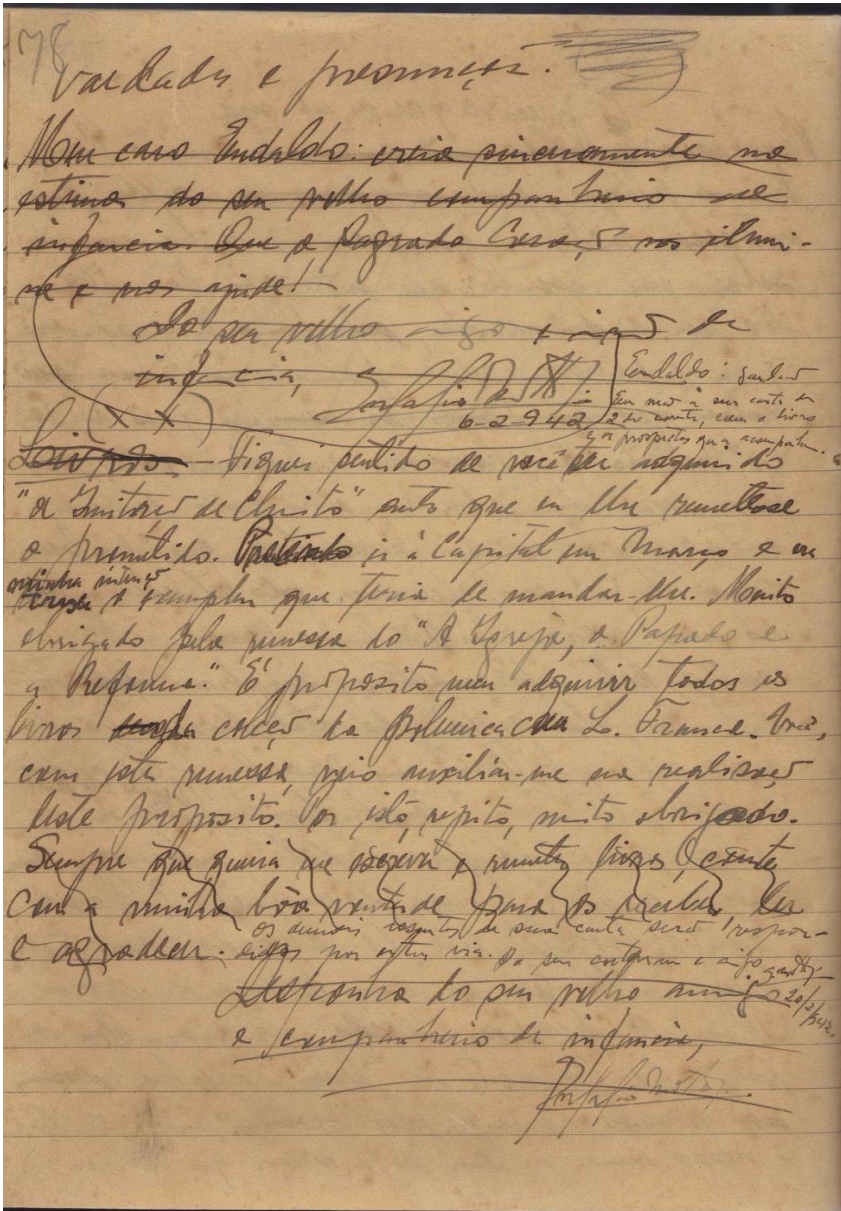 78
vaidades e presunções.
Meu caro Eudaldo: creia sinceramente na
estima do seu velho companheiro de
infancia. Que o Sagrado Coração nos ilumi-
ne e nos ajude!
Do seu velho amigo e irmão de
infancia,
6-2-942
Eudaldo:
em mão a sua carta de
2 do corrente, com o livro
e os prospectos que a acompanham.
(x x)
Livros – Fiquei sentido de você ter adquirido
"a Imitação de Christo" antes que eu lhe remettesse
o promettido. Pretendo ir á Capital em Março e era
minha intenção
o exemplar que teria de mandar-lhe. Muito
obrigado pela remessa do "A Igreja, a
Papado e
a Reforma." É proposito meu adquirir todos os
livros da coleção da polemica com L. Franca. Você,
com esta remessa, veio auxiliar-me na realisação
deste proposito. Por isto, repito, muito obrigado.
Sempre que queira me escreva e remetta livros, conte
com a minha bôa vontade para os receber, ler
e agradecer.
os demais assumptos de sua carta serão respon-
didos por outra via. Do seu
20/2/942.
do seu velho amigo
e companheiro de infancia,